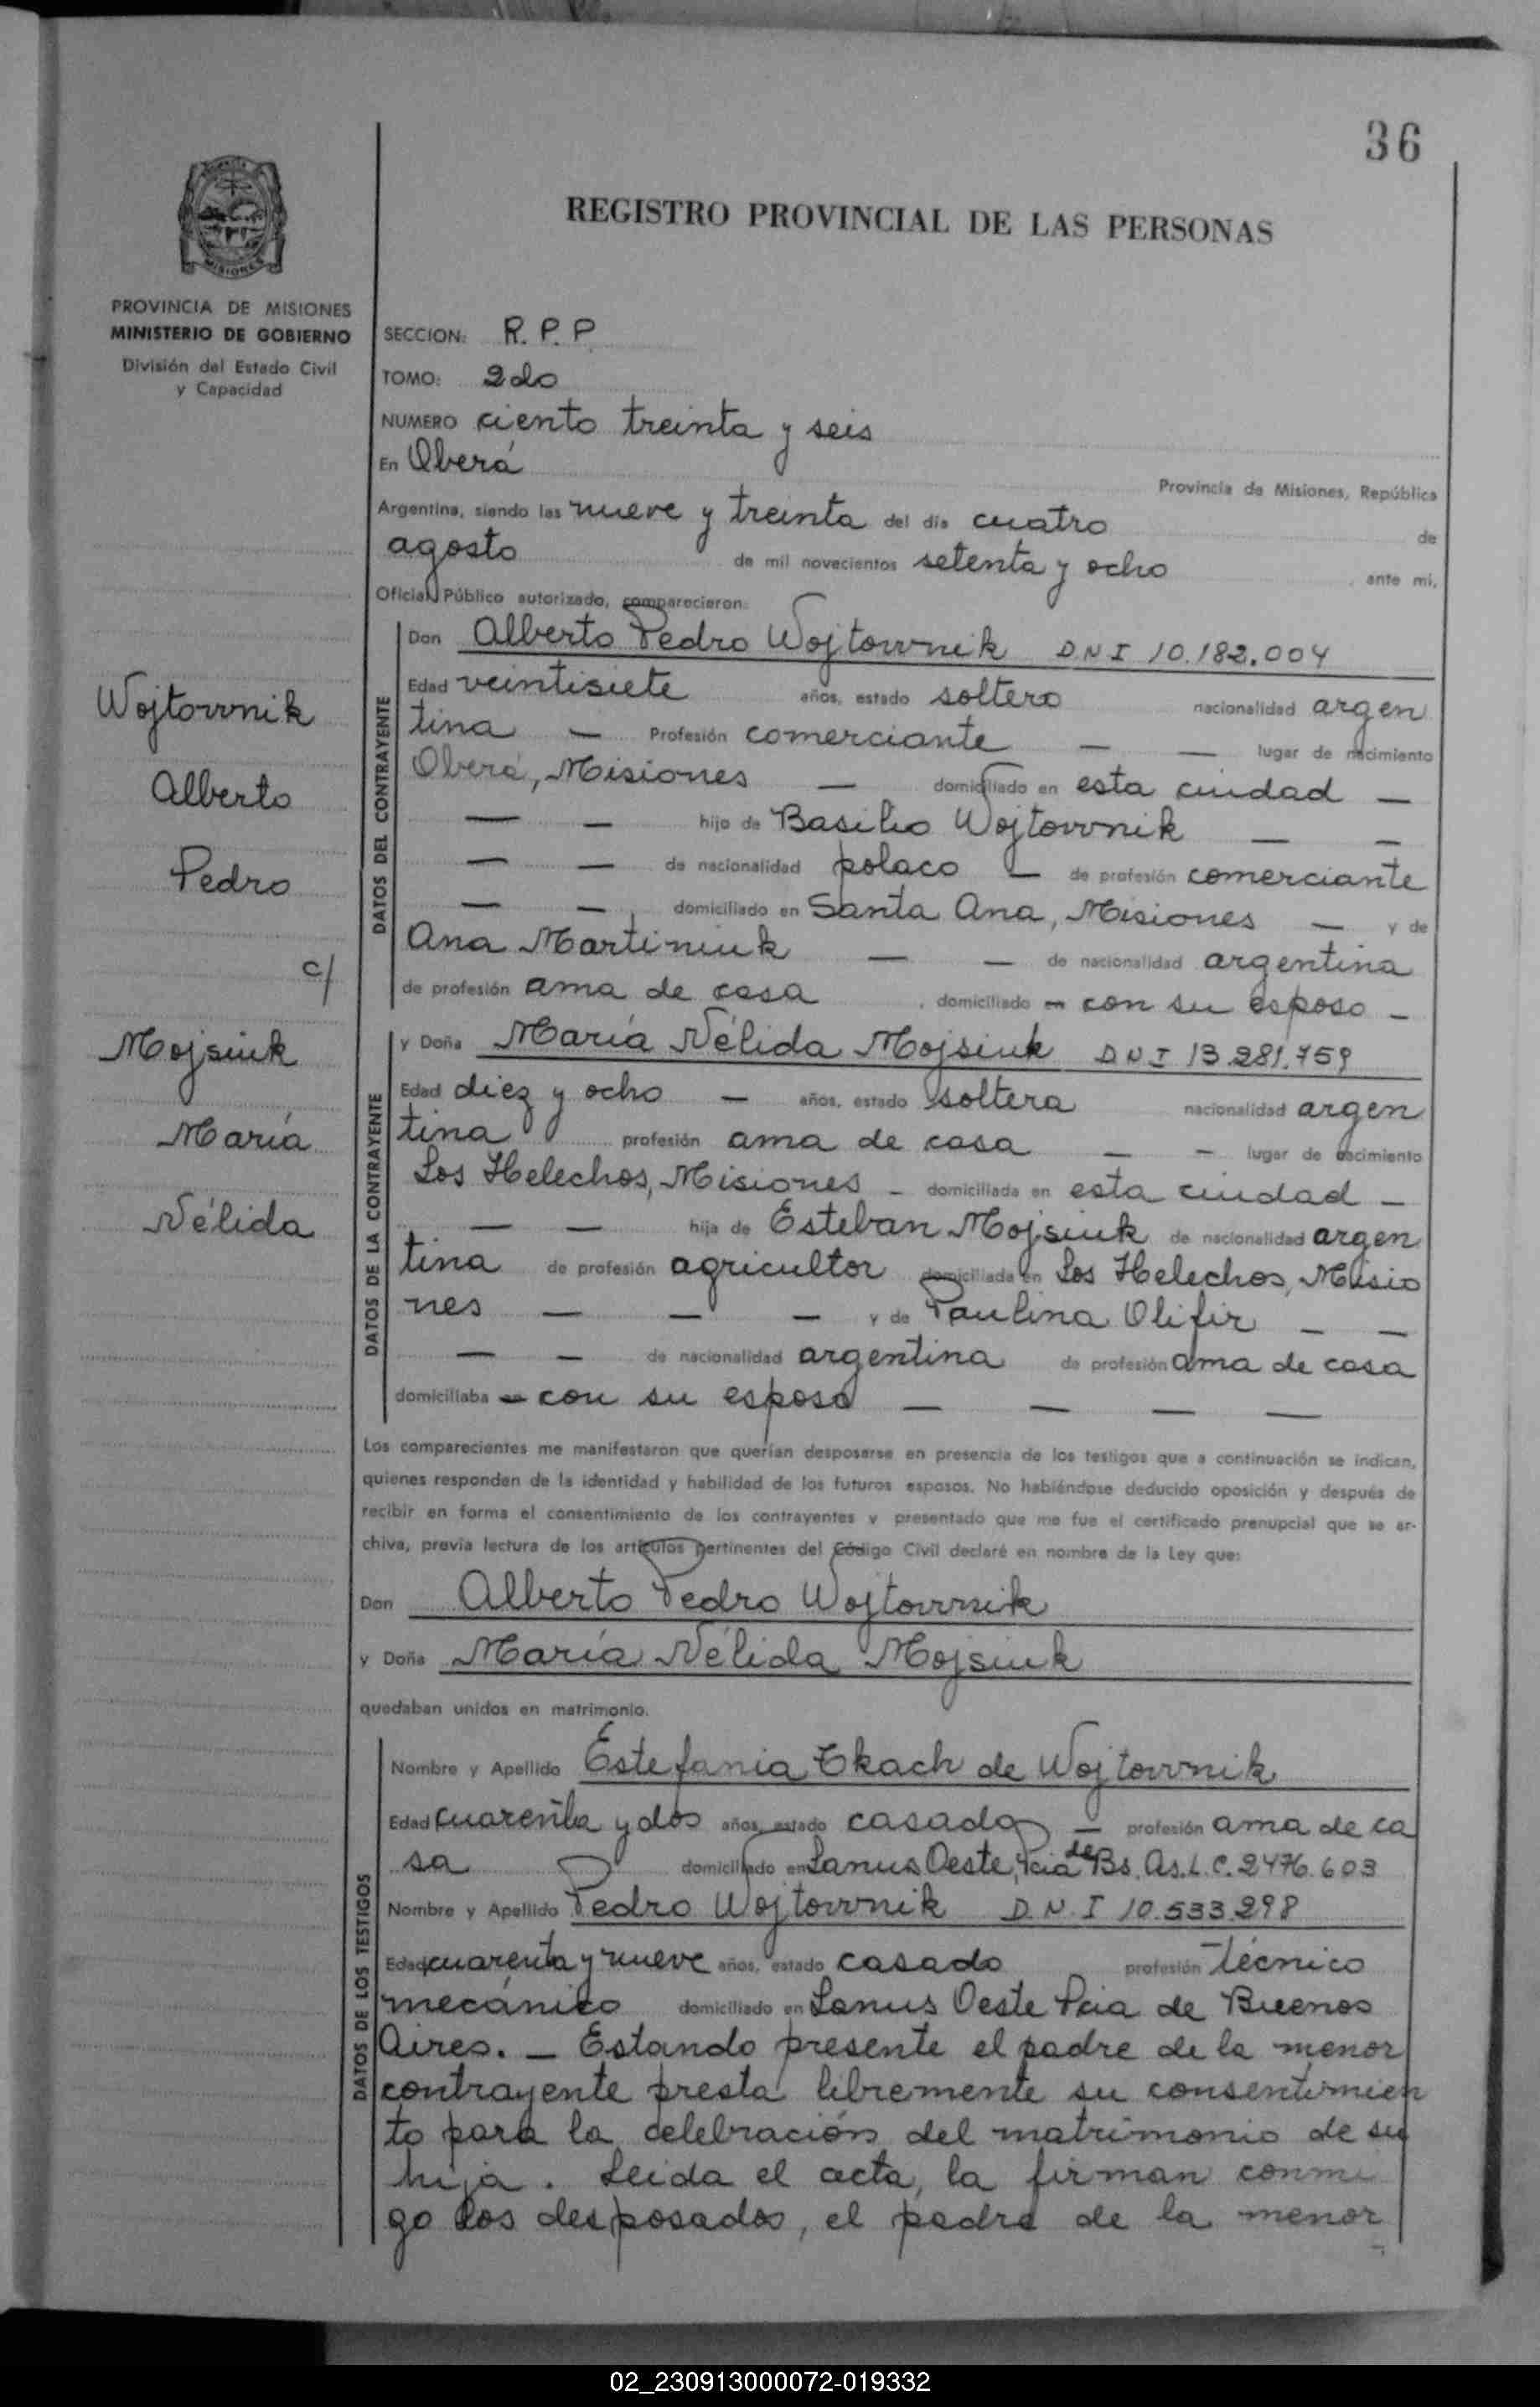 36
REGISTRO PROVINCIAL DE LAS PERSONAS
MISIONES
PROVINCIA DE MISIONES
MINISTERIO DE GOBIERNO
División del Estado Civil
y Capacidad
SECCION: R. P. P.
TOMO: 2do
NUMERO ciento treinta y seis
En Oberá
Provincia de Misiones, República
Argentina, siendo las nueve y treinta del día cuatro de
agosto de mil novecientos setenta y ocho, ante mi,
Oficial Público autorizado, comparecieron:
Wojtovvnik
Alberto
Pedro
c/
Mojsiuk
María
Nélida
DATOS DEL CONTRAYENTE
Don Alberto Pedro Wojtovvnik DNI 10.182.004
Edad veintisiete años, estado soltero nacionalidad argen
tina — Profesión comerciante — — lugar de nacimiento
Oberá, Misiones — domiciliado en esta ciudad —
— — hijo de Basilio Wojtovvnik — —
— — de nacionalidad polaco — de profesión comerciante
— —, domiciliado en Santa Ana, Misiones — y de
Ana Martiniuk — — de nacionalidad argentina
de profesión ama de casa, domiciliado en con su esposo —
DATOS DE LA CONTRAYENTE
y Doña María Nélida Mojsiuk DNI 13.281.759
Edad diez y ocho — años, estado soltera nacionalidad argen
tina profesión ama de casa — — lugar de nacimiento
Los Helechos, Misiones — domiciliada en esta ciudad —
— — hija de Esteban Mojsiuk de nacionalidad argen
tina de profesión agricultor domiciliada en Los Helechos, Misio
nes — — — y de Paulina Olifir — —
— — de nacionalidad argentina de profesión ama de casa
domiciliaba en con su esposo — — — —
Los comparecientes me manifestaron que querían desposarse en presencia de los testigos que a continuación se indican,
quienes responden de la identidad y habilidad de los futuros esposos. No habiéndose deducido oposición y después de
recibir en forma el consentimiento de los contrayentes y presentado que me fue el certificado prenupcial que se ar-
chiva, previa lectura de los artículos pertinentes del Código Civil declaré en nombre de la Ley que:
Don Alberto Pedro Wojtovvnik
y Doña María Nélida Mojsiuk
quedaban unidos en matrimonio.
DATOS DE LOS TESTIGOS
Nombre y Apellido Estefania Tkach de Wojtovvnik
Edad cuarenta y dos años, estado casada — profesión ama de ca
sa domiciliado en Lanus Oeste, Pcia de Bs. As. L.C. 2476.603
Nombre y Apellido Pedro Wojtovvnik D.N.I 10.533.298
Edad cuarenta y nueve años, estado casado profesión Técnico
mecánico domiciliado en Lanus Oeste Pcia de Buenos
Aires. — Estando presente el padre de la menor
contrayente presta libremente su consentimien
to para la celebración del matrimonio de su
hija. Leida el acta, la firman conmi
go los desposados, el padre de la menor
02_230913000072-019332